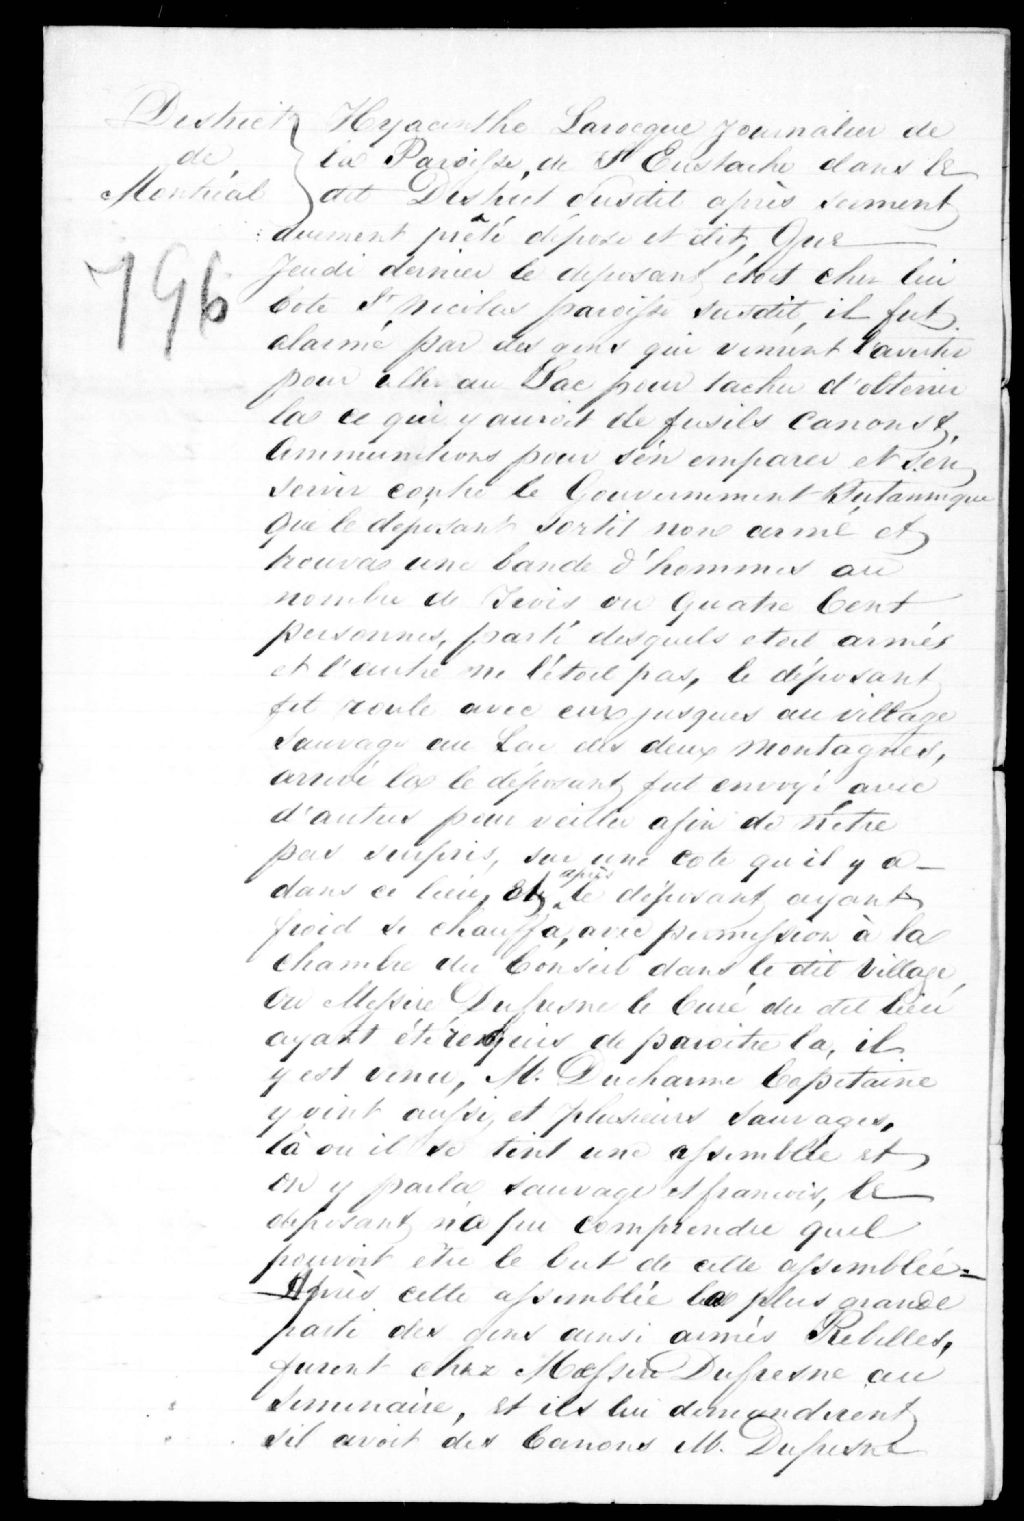 District de Montréal
796
Hyacinthe Larocque Journalier de
la Paroisse, de St Eustache dans le
dit District Susdit après serment
duement prêté dépose et dit, Que
Jeudi dernier le déposant étoit chez lui
Cote St Nicolas paroisse susdit, il fut
alarmé par des gens qui vinrent l'avertir
pour aller au Lac pour tacher d'obtenir
la ce qui y auroit de fusils Canons &
Ammunitions pour s'en emparer et s'en
servir contre le Gouvernement Britannique
Que le déposant sortit non armé et
trouva une bande d'hommes au
nombre de Trois ou Quatre Cent
personnes, parti desquels etoit armés
et l'autre ne l'étoit pas, le déposant
fit route avec eux jusques au village
Sauvage au Lac des deux Montagnes,
arrivé la le déposant fut envoyé avec
d'autres pour veiller afin de n'être
pas surpris, sur une cote qu'il y a
dans ce lieu, Et après le déposant ayant
froid se chauffa, avec permission à la
chambre du Conseil dans le dit Village
Ou Messire Dufresne le Curé du dit lieu
ayant été requis de paroitre la, il
y est venu, M. Ducharme Capitaine
y vint aussi, et plusieurs Sauvages,
là ou il se tint une assemblée et
on y parla sauvage et francois, le
déposant n'a pu comprendre quel
pouvoit être le but de cette assemblée=
Après cette assemblée la plus grande
parti des gens ainsi armés Rebelles,
furent chez Messire Dufresne au
Seminaire, et ils lui demanderent
s'il avoit des Canons M. Dufresne